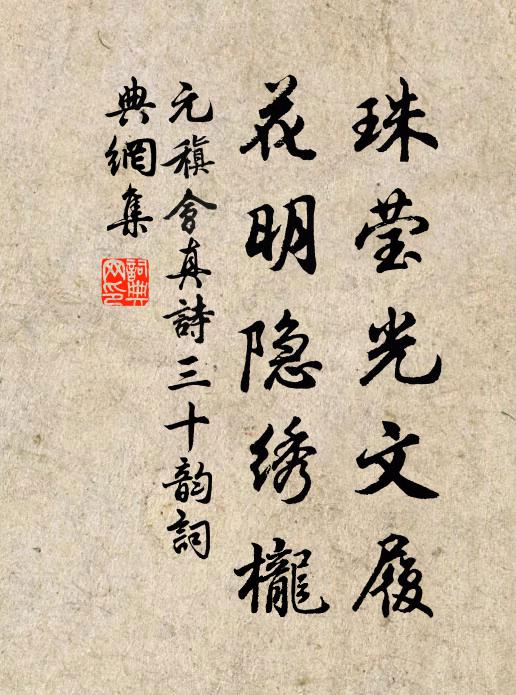 珠莹光文履
花明隐绣櫳
元稹會真詩三十韵詞
典網集
詞典网印